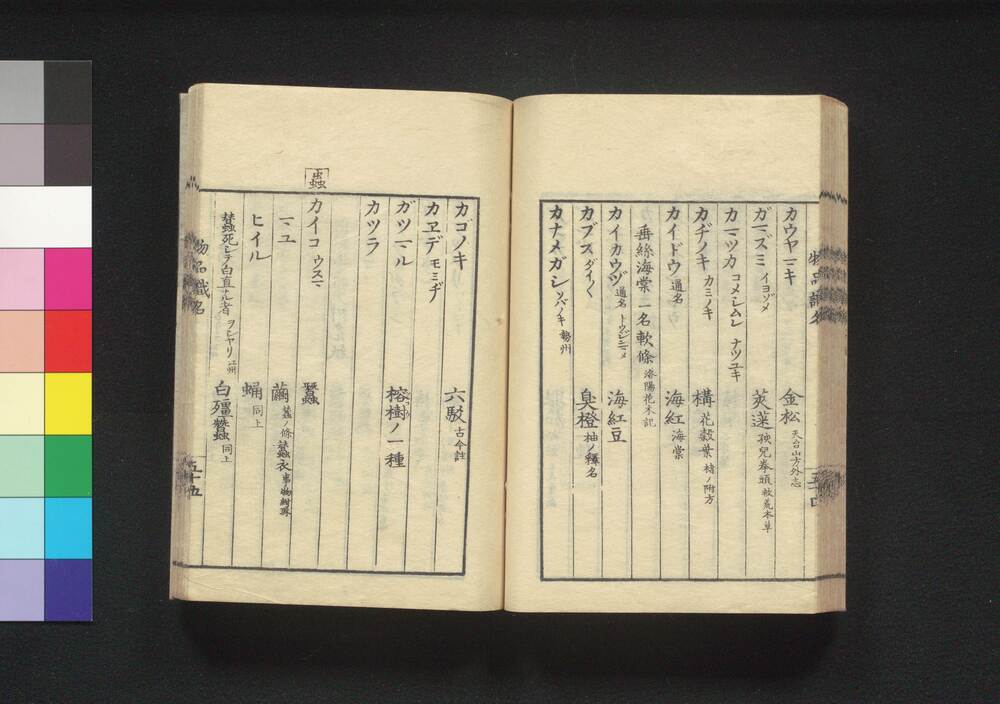 カウヤマキ 金松 天台山方外志
ガマズミ イヨゾメ 莢蒾 孩兒拳頭 救荒本草
カマツカ コメシムシ ナツユキ
カヂノキ カミノキ 構 花穀葉 楮ノ附方
カイドウ 通名 海紅 海棠
垂絲海棠 一名軟條 洛陽花木記
カイカウヅ 通名 海紅豆
カブス ダイ〱 臭橙 柚ノ釋名
カナメガシ ソバノキ 勢州
物品識名
五十四
カゴノキ 六駁 古今註
カヱデ モミヂ
ガツマル 榕樹ノ一種
カツラ
蟲
カイコ ウスマ 蠶
マユ 繭 蠶ノ條 蠶衣 事物紺珠
ヒイル 蛹 同上
蠶死シテ白直ナル者 ヲシャリ 江州 白殭蠶 同上
物品識名
五十五